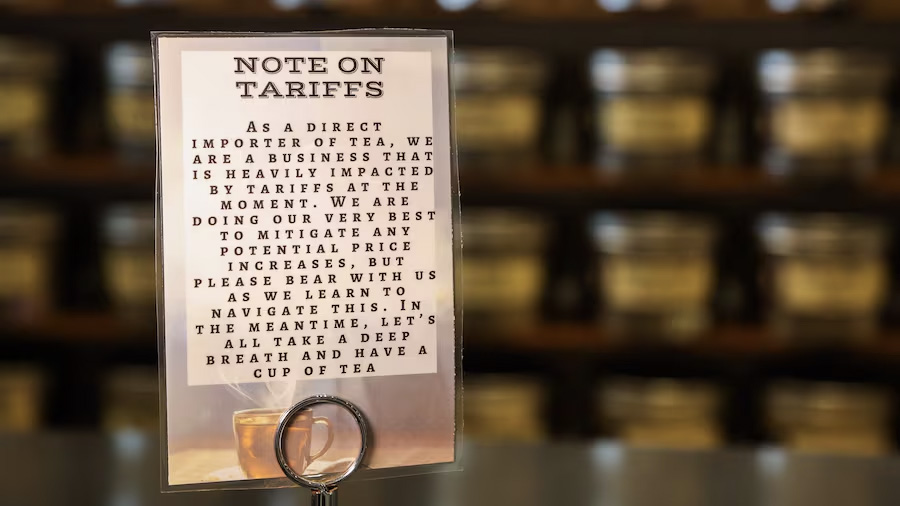 NOTE ON
TARIFFS
AS A DIRECT
IMPORTER OF TEA, WE
ARE A BUSINESS THAT
IS HEAVILY IMPACTED
BY TARIFFS AT THE
MOMENT. WE ARE
DOING OUR VERY BEST
TO MITIGATE ANY
POTENTIAL PRICE
INCREASES, BUT
PLEASE BEAR WITH US
AS WE LEARN TO
NAVIGATE THIS. IN
THE MEANTIME, LET'S
ALL TAKE A DEEP
BREATH AND HAVE A
CUP OF TEA